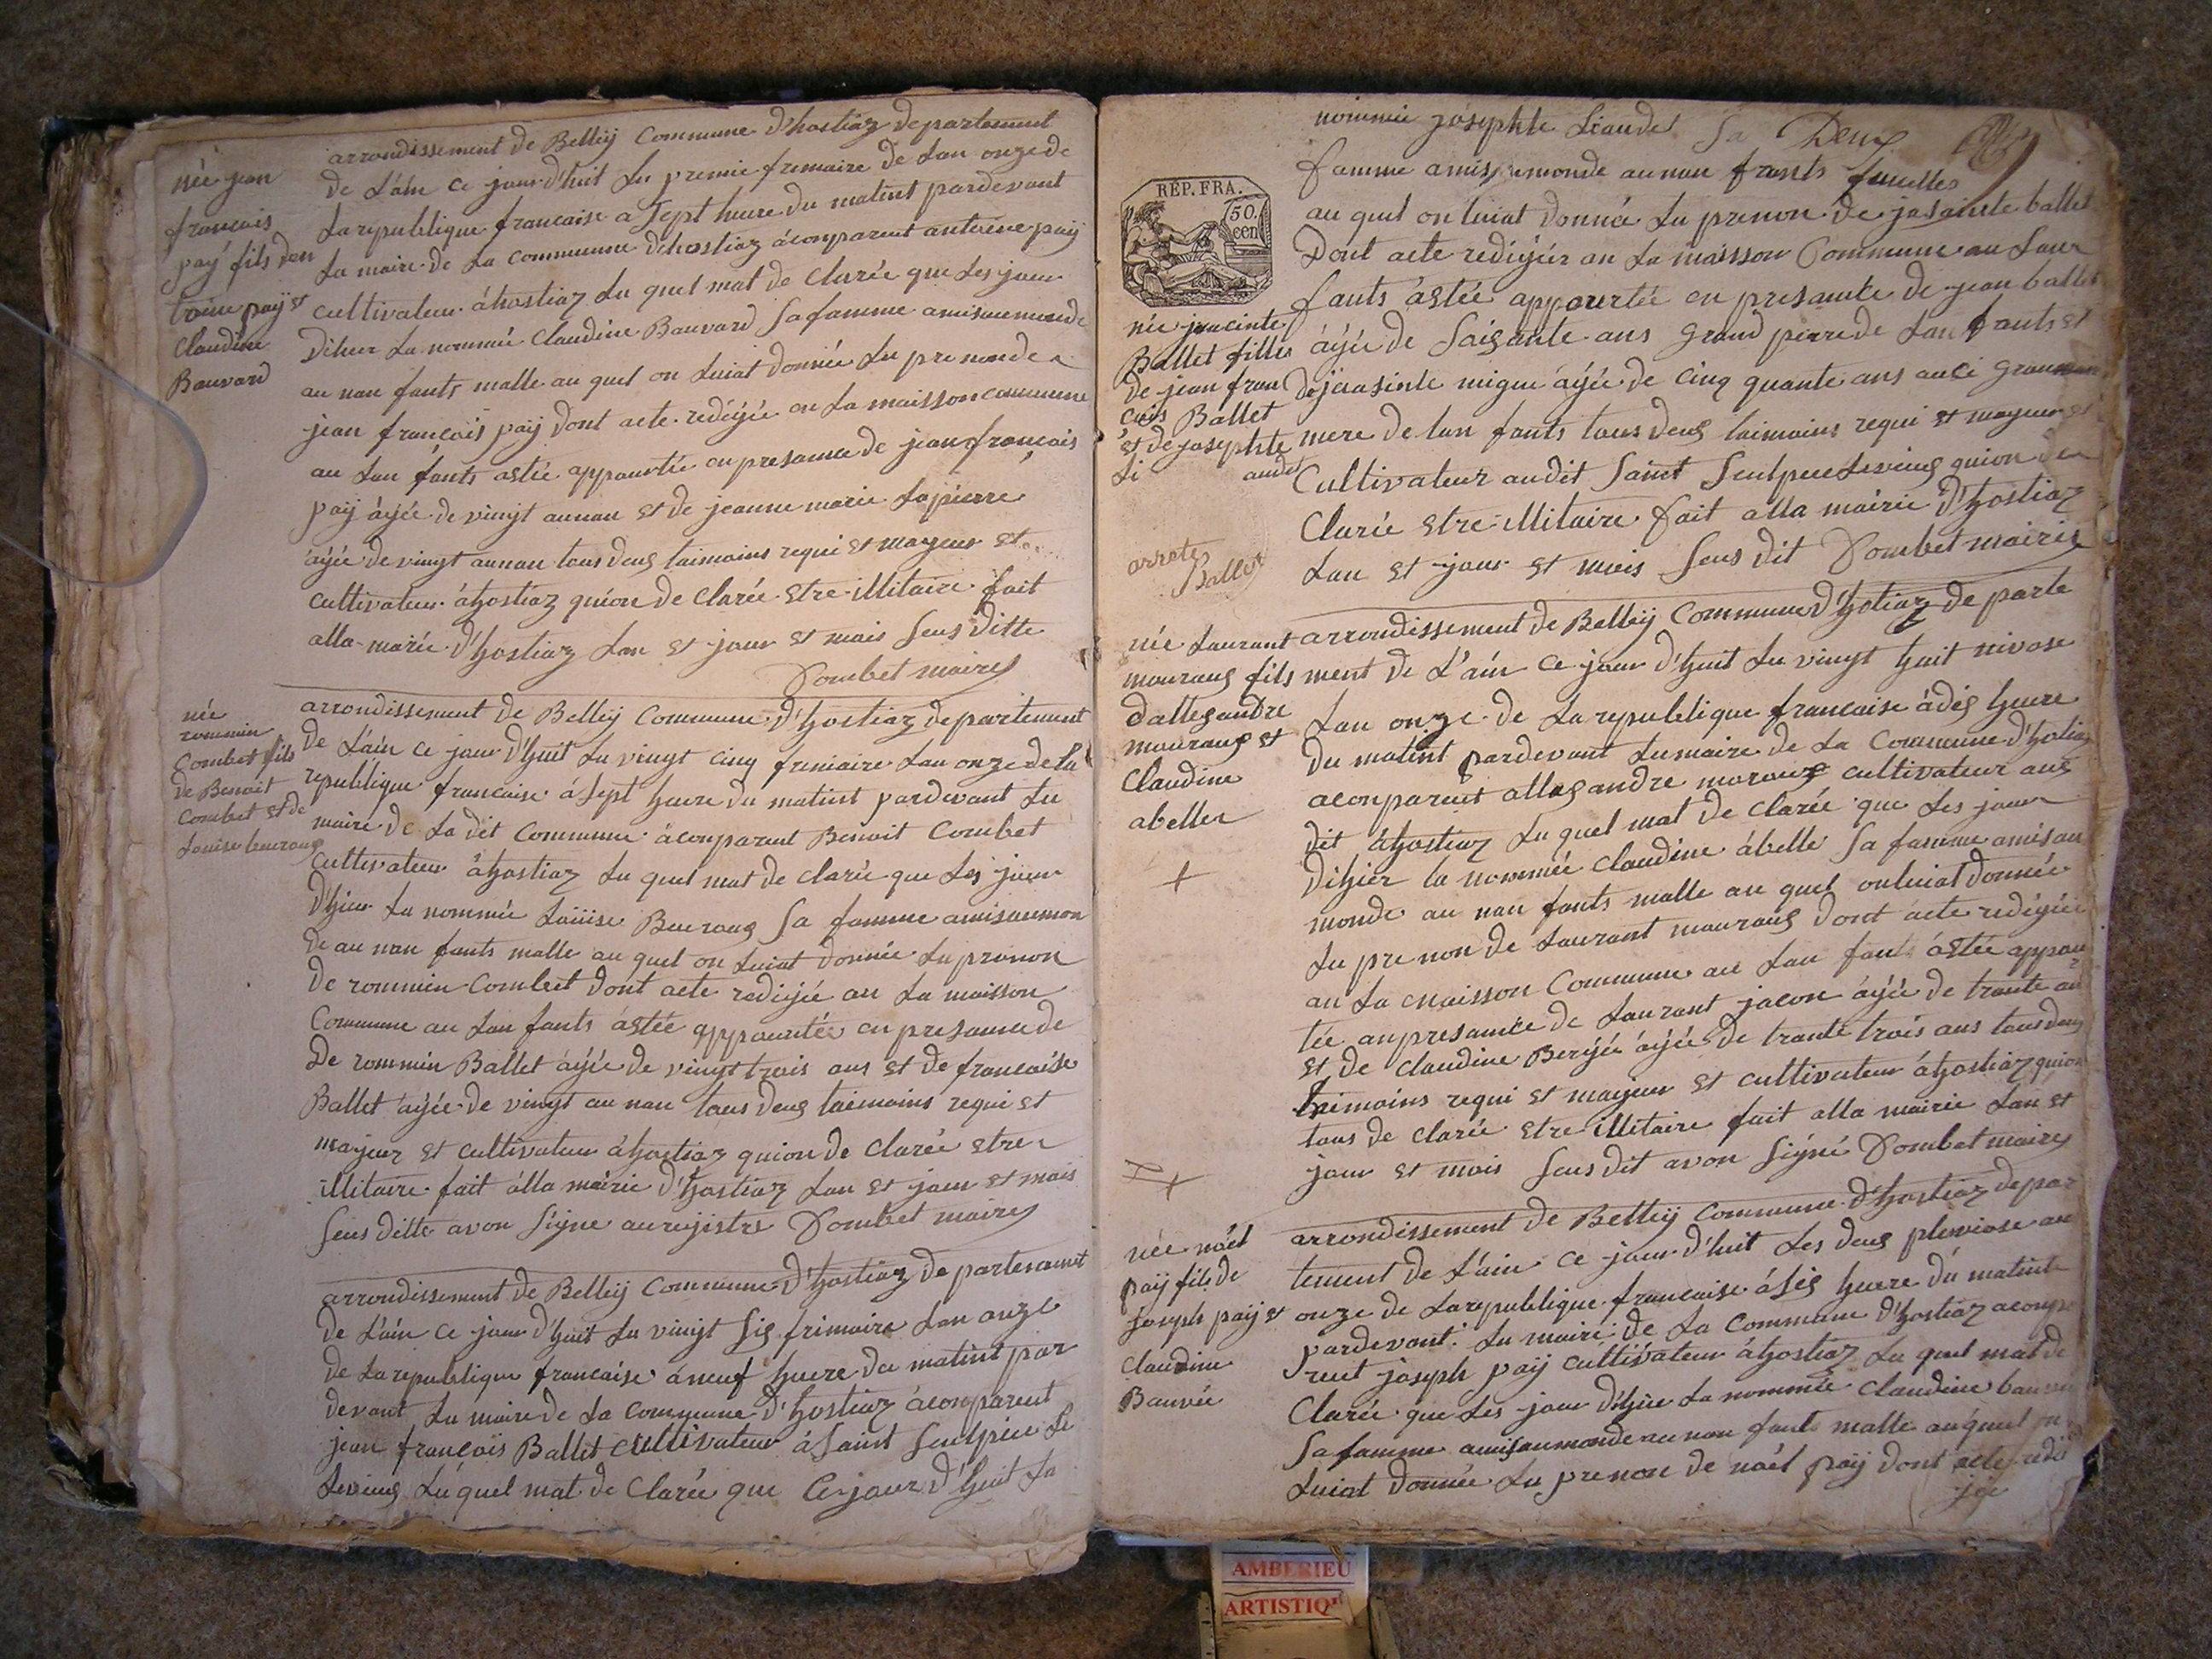 née jean
francais
paÿ fils dan
toine paÿ et
Claudine
Bauvard
arrondissement de Belleÿ Commune d'hostiaz departement
de L'ain ce jour d'huit Lu premie frimaire de Lan onze de
La republique francaise a sept heure du matint pardevant
Lu maire de La commune d'hostiaz áconpareut antoine paÿ
cultivateur áhostiaz Lu quel mat de clarée que Les jour
Dihier La nommée Claudine Bauvard Sa famme amisaumonde
au nan fants malle au quel on Luiat donnée Lu pre nom de
jean françois paÿ dont acte redigée an La maisson commune
au Lan fants astée appourtée en presance de jean francois
paÿ âgée de vingt aunan et de jeanne marie Lapierre
âgée de vingt aunan tous deus taimoins requi et mayeur et
cultivateur áhostiaz quion de clarée etre illitaire fait
alla mairie d'hostiaz Lan et jour et mais Sus ditte
Combet maire
née
rommin
Combet fils
de Benoit
Combet et de
Louise beuraug
arrondissement de Belleÿ Commune d'hostiaz departement
de L'ain ce jour d'huit Lu vingt cinq frimaire Lan onze de La
republique francaise á Sept heure du matint pardevant Lu
maire de La dit Commune áconparent Benoit Combet
cultivateur áhostiaz Lu quel mat de clarée que Les jour
D'hier La nommée Louise Beuraug Sa famme amisaumon
de au nan fants malle au quel on Luiat donnée Lu prenon
de rommin Combet dont acte redigée an La maisson
Commune au Lan fants astée appourtée en presance de
De rommin Ballet âgée de vingt trois ans et de francoise
Ballet âgée de vingt au nan tous deus taimoins requi et
majeur et cultivateur áhostiaz quion de clarée etre
illitaire fait álla mairie d'hostiaz Lan et jour et mais
Sus ditte avon Signe au rejistre Combet maire
arrondissement de Belleÿ Commune d'hostiaz departement
de L'ain ce jour d'huit Lu vingt Sis frimaire Lan onze
de La republique francaise áneuf heure du matint par
devant Lu maire de La commune d'hostiaz áconparent
jean françois Ballet cultivateur á Saint Sulpice Le
Levieus Lu quel mat de clarée que Ce jour d'huit La
nommée josephte Liaudet Sa Deux
RÉP. FRA.
50.
cen
famme amis aumonde au nan fants femelles
au quel on Luiat donnée Lu prenon de jasainte ballet
Dont acte redigiée an La maisson Commune au Lanx
fants ástée appourtée en presance de jean ballet
âgée de Saisante ans grand perre de Lan fants et
de jausinte migue âgée de cinq quante ans auci gran
mere de lan fants tous deus taimoins requi et mayeur et
Cultivateur audit Saint Seulpice Levieus quion de
Clarée etre illitaire fait álla mairie d'hostiaz
Lan et jour et mois Sus dit Combet maire
née jaucinte
Ballet filles
de jean fran
cois Ballet
et de josephte
Li audet
arrete
Ballet
née Laurant
mouraus fils
dallesandre
mouraus et
Claudine
abelle
arrondissement de Belleÿ Commune d'hotiaz de parte
ment de L'ain ce jour d'huit Lu vingt huit nivose
Lan onze de La republique francaise ádis heure
du matint pardevant Lu maire de La Commune d'hostiaz
aconpareut allesandre moraus cultivateur aus
dit áhostiaz Lu quel mat de clarée que Les jour
Dihier la nommée Claudine ábelle Sa famme amisau
monde au nan fants malle au quel onluiat donnée
Lu pre non de Laurant mouraus dont acte redigée
an La maisson Commune au Lan fants ástée appour
tée anpresance de Laurant jacon âgée de trante an
et de Claudine Bergée âgée de trante trois ans tous deus
taimoins requi et mayeur et cultivateur áhostiaz quion
tous de clarée etre illitaire fait alla mairie Lan et
jour et mois Sus dit avon Signé Combet maire
née noël
paÿ fils de
joseph paÿ et
Claudine
Bauvée
arrondissement de Belleÿ Commune d'hostiaz depar
tement de L'ain ce jour d'huit Les deus pluviose an
onze de La republique francaise á Sis heure du matint
pardevant Lu maire de La Commune d'hostiaz aconpa
reut joseph paÿ cultivateur áhostiaz Lu quel mat de
Clarée que Les jour d'hier La nommée Claudine
Sa famme amisaumonde au nan fants malle auquel on
Luiat donnée Lu prenon de noël paÿ dont acte redi
jée
AMBERIEU
ARTISTIQ